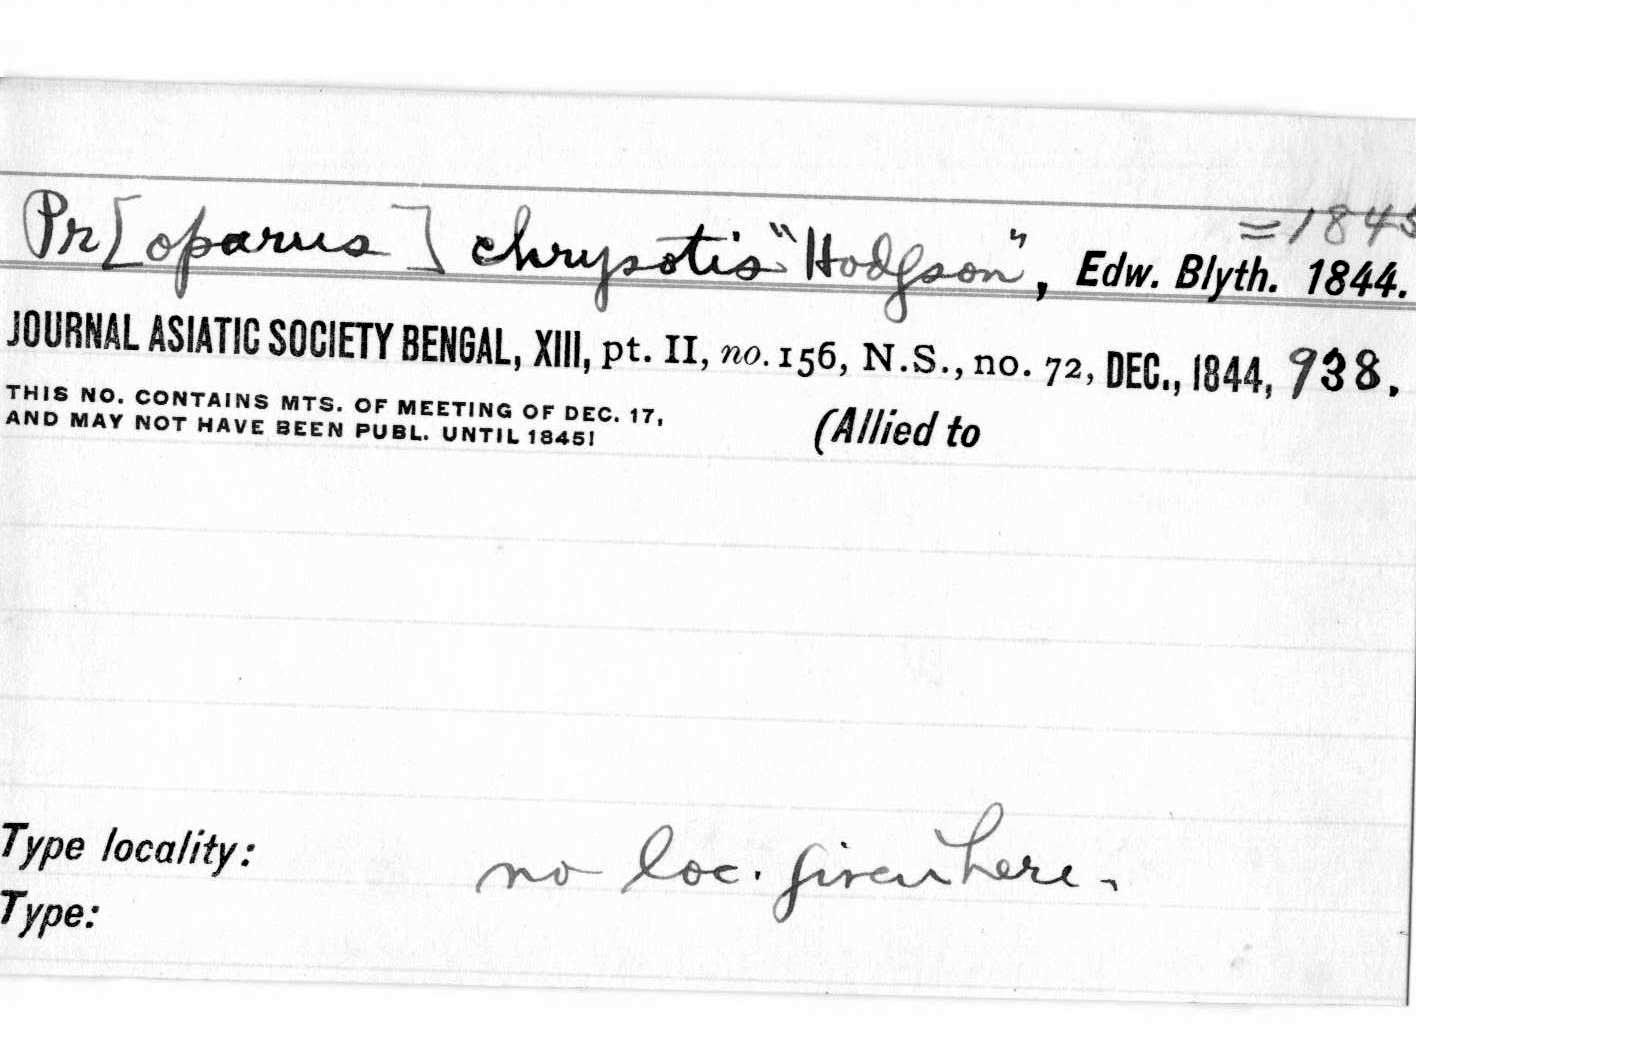 = 1845
Pr[oparus] chrysotis "Hodgson", Edw. Blyth. 1844.
JOURNAL ASIATIC SOCIETY BENGAL, XIII, pt. II, no. 156, N.S., no. 72, DEC., 1844, 938.
THIS NO. CONTAINS MTS. OF MEETING OF DEC. 17,
AND MAY NOT HAVE BEEN PUBL. UNTIL 1845!
(Allied to
Type locality: no loc. given here.
Type: